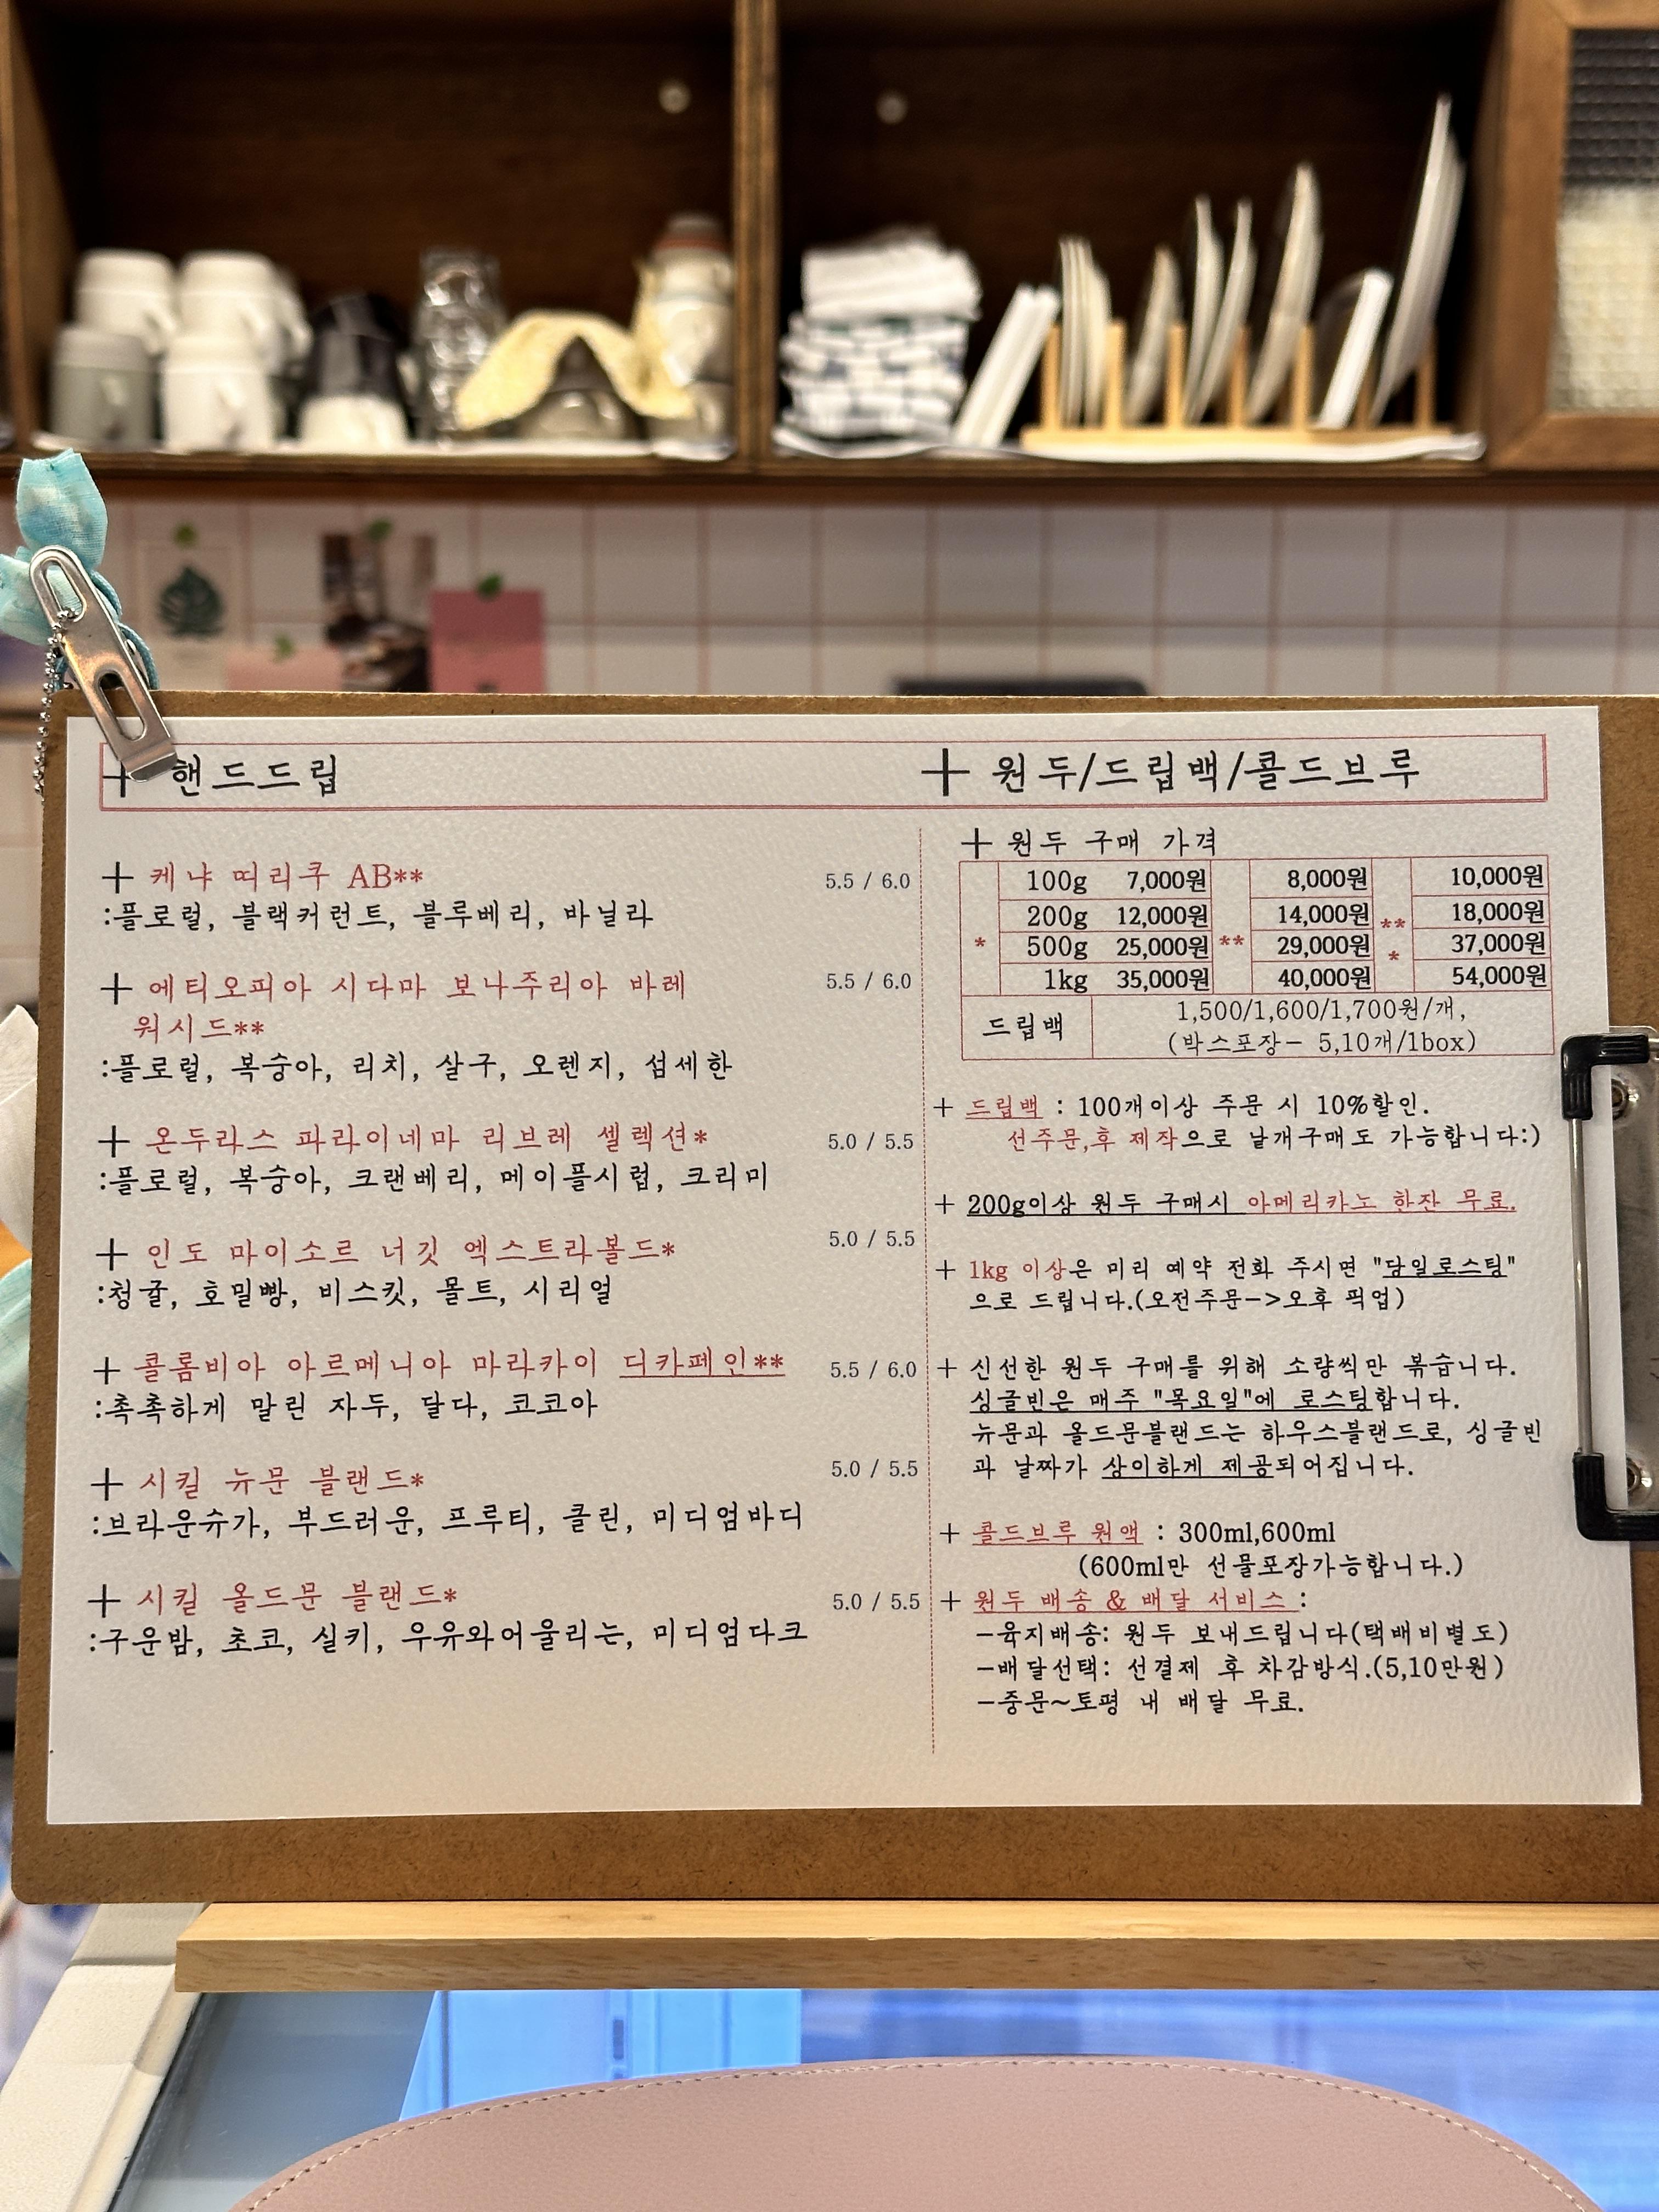 + 핸드드립
+ 케냐 띠리쿠 AB** 5.5 / 6.0
:플로럴, 블랙커런트, 블루베리, 바닐라
+ 에티오피아 시다마 보나주리아 바레 5.5 / 6.0
워시드**
:플로럴, 복숭아, 리치, 살구, 오렌지, 섬세한
+ 온두라스 파라이네마 리브레 셀렉션* 5.0 / 5.5
:플로럴, 복숭아, 크랜베리, 메이플시럽, 크리미
+ 인도 마이소르 너깃 엑스트라볼드* 5.0 / 5.5
:청귤, 호밀빵, 비스킷, 몰트, 시리얼
+ 콜롬비아 아르메니아 마라카이 디카페인** 5.5 / 6.0
:촉촉하게 말린 자두, 달다, 코코아
+ 시킬 뉴문 블랜드* 5.0 / 5.5
:브라운슈가, 부드러운, 프루티, 클린, 미디엄바디
+ 시킬 올드문 블랜드* 5.0 / 5.5
:구운밤, 초코, 실키, 우유와어울리는, 미디엄다크
+ 원두/드립백/콜드브루
+ 원두 구매 가격
* 100g 7,000원 ** 8,000원 *** 10,000원
200g 12,000원 14,000원 18,000원
500g 25,000원 29,000원 37,000원
1kg 35,000원 40,000원 54,000원
드립백 1,500/1,600/1,700원/개,
(박스포장- 5,10개/1box)
+ 드립백 : 100개이상 주문 시 10%할인.
선주문,후 제작으로 낱개구매도 가능합니다:)
+ 200g이상 원두 구매시 아메리카노 한잔 무료.
+ 1kg 이상은 미리 예약 전화 주시면 "당일로스팅"
으로 드립니다.(오전주문->오후 픽업)
+ 신선한 원두 구매를 위해 소량씩만 볶습니다.
싱글빈은 매주 "목요일"에 로스팅합니다.
뉴문과 올드문블랜드는 하우스블랜드로, 싱글빈
과 날짜가 상이하게 제공되어집니다.
+ 콜드브루 원액 : 300ml,600ml
(600ml만 선물포장가능합니다.)
+ 원두 배송 & 배달 서비스 :
-육지배송: 원두 보내드립니다(택배비별도)
-배달선택: 선결제 후 차감방식.(5,10만원)
-중문~토평 내 배달 무료.